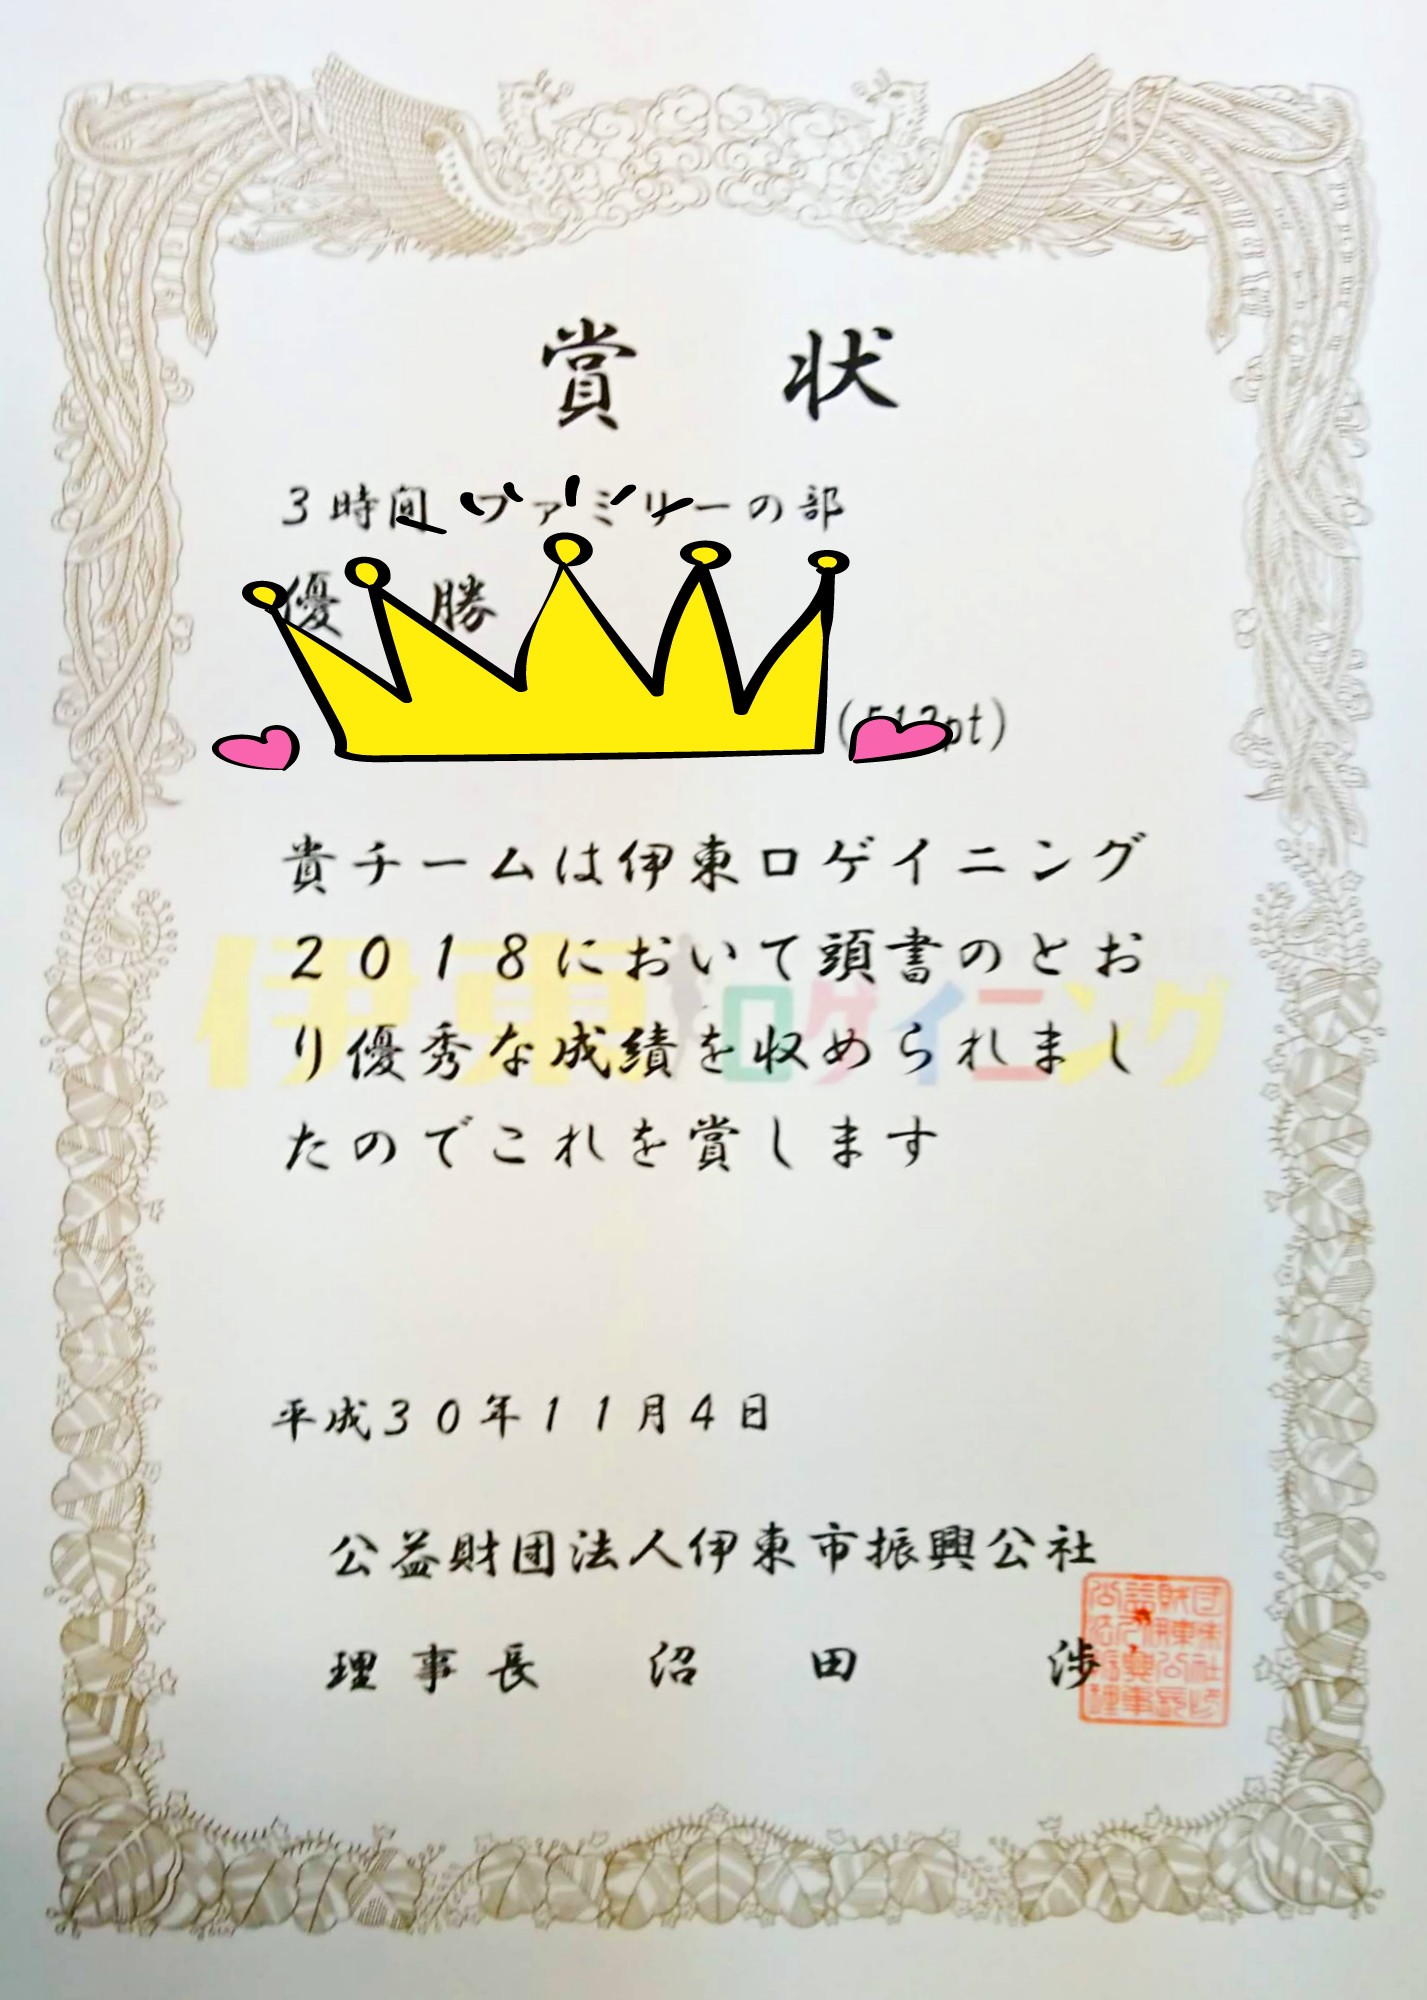 賞 状
3時間 ファミリーの部
優 勝
貴チームは伊東ロゲイニング
2018において頭書のとお
り優秀な成績を収められまし
たのでこれを賞します
伊東ロゲイニング
平成30年11月4日
公益財団法人伊東市振興公社
理事長 沼 田 渉